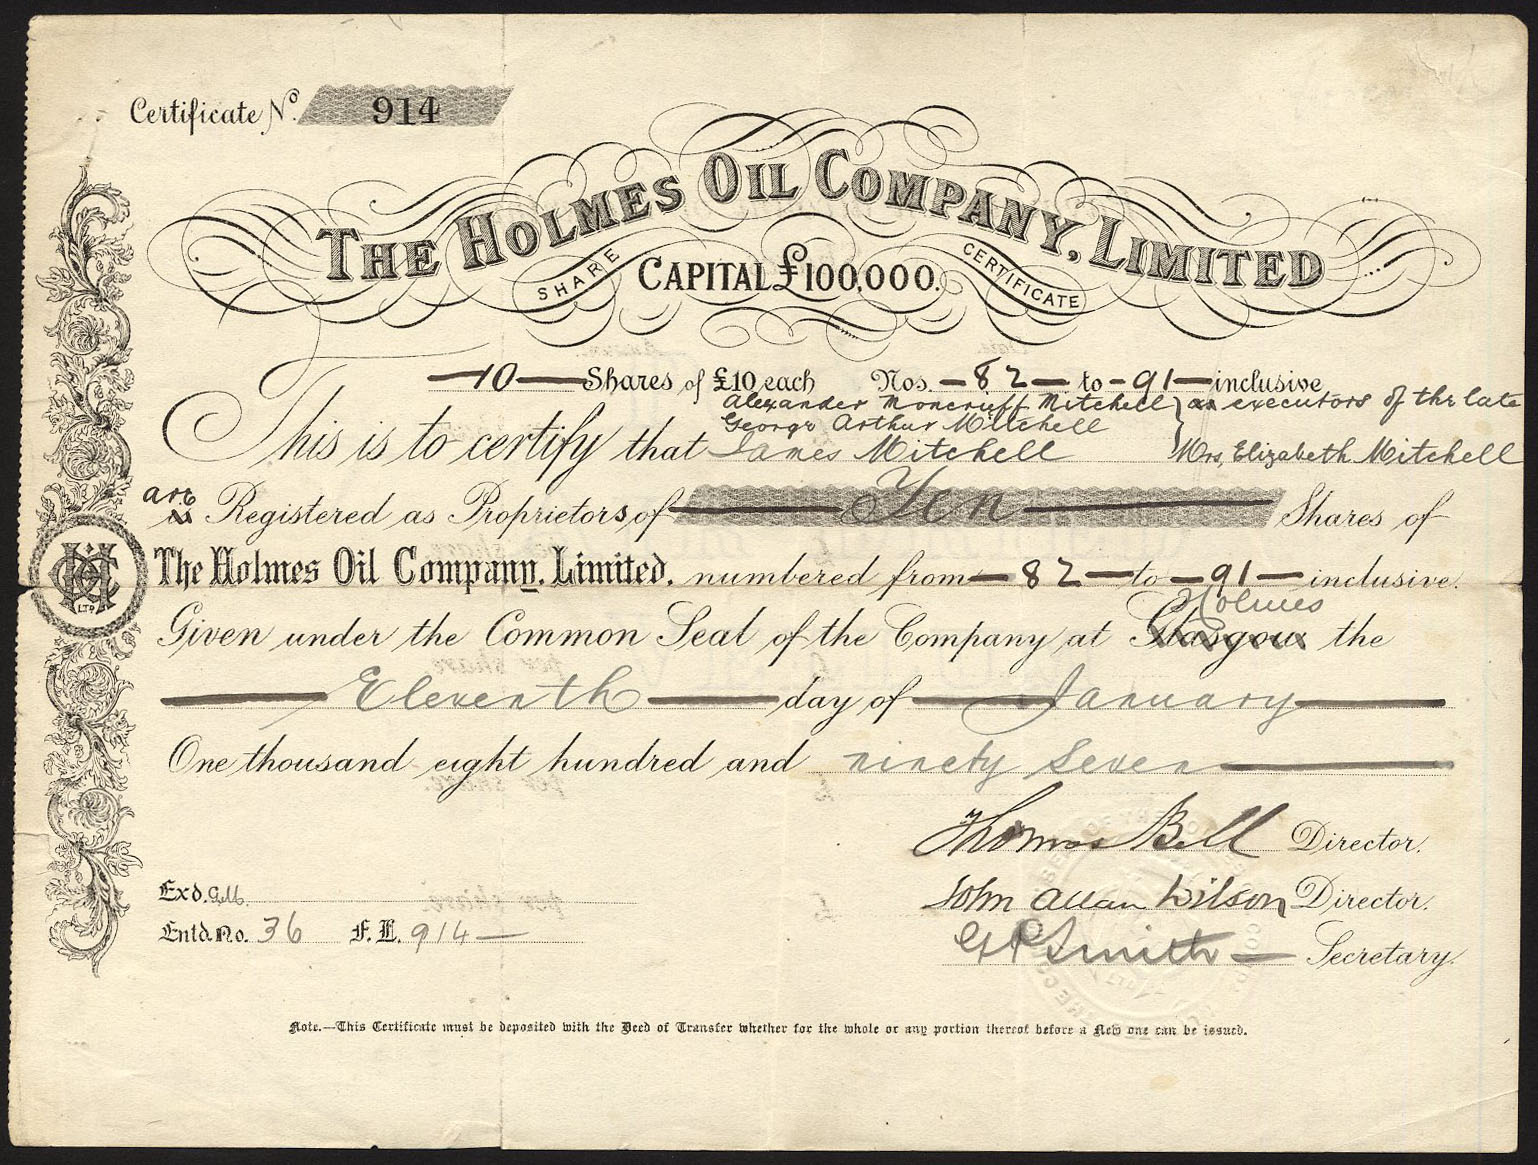 Certificate No. 914
THE HOLMES OIL COMPANY, LIMITED
SHARE CAPITAL £100,000. CERTIFICATE
10 Shares of £10 each Nos. 82 to 91 inclusive
Alexander Moncrieff Mitchell } as executors of the late
George Arthur Mitchell
This is to certify that James Mitchell Mrs, Elizabeth Mitchell
are
is Registered as Proprietors, of Ten Shares of
The Holmes Oil Company, Limited, numbered from 82 to 91 inclusive.
Holmes
Given under the Common Seal of the Company at Glasgow the
Eleventh day of January
One thousand eight hundred and ninety Seven
Thomas Bell Director.
Exd. John Allan Wilson Director.
Entd. No. 36 F.L. 914 Smith Secretary.
Note.—This Certificate must be deposited with the Deed of Transfer whether for the whole or any portion thereof before a New one can be issued.
LTD